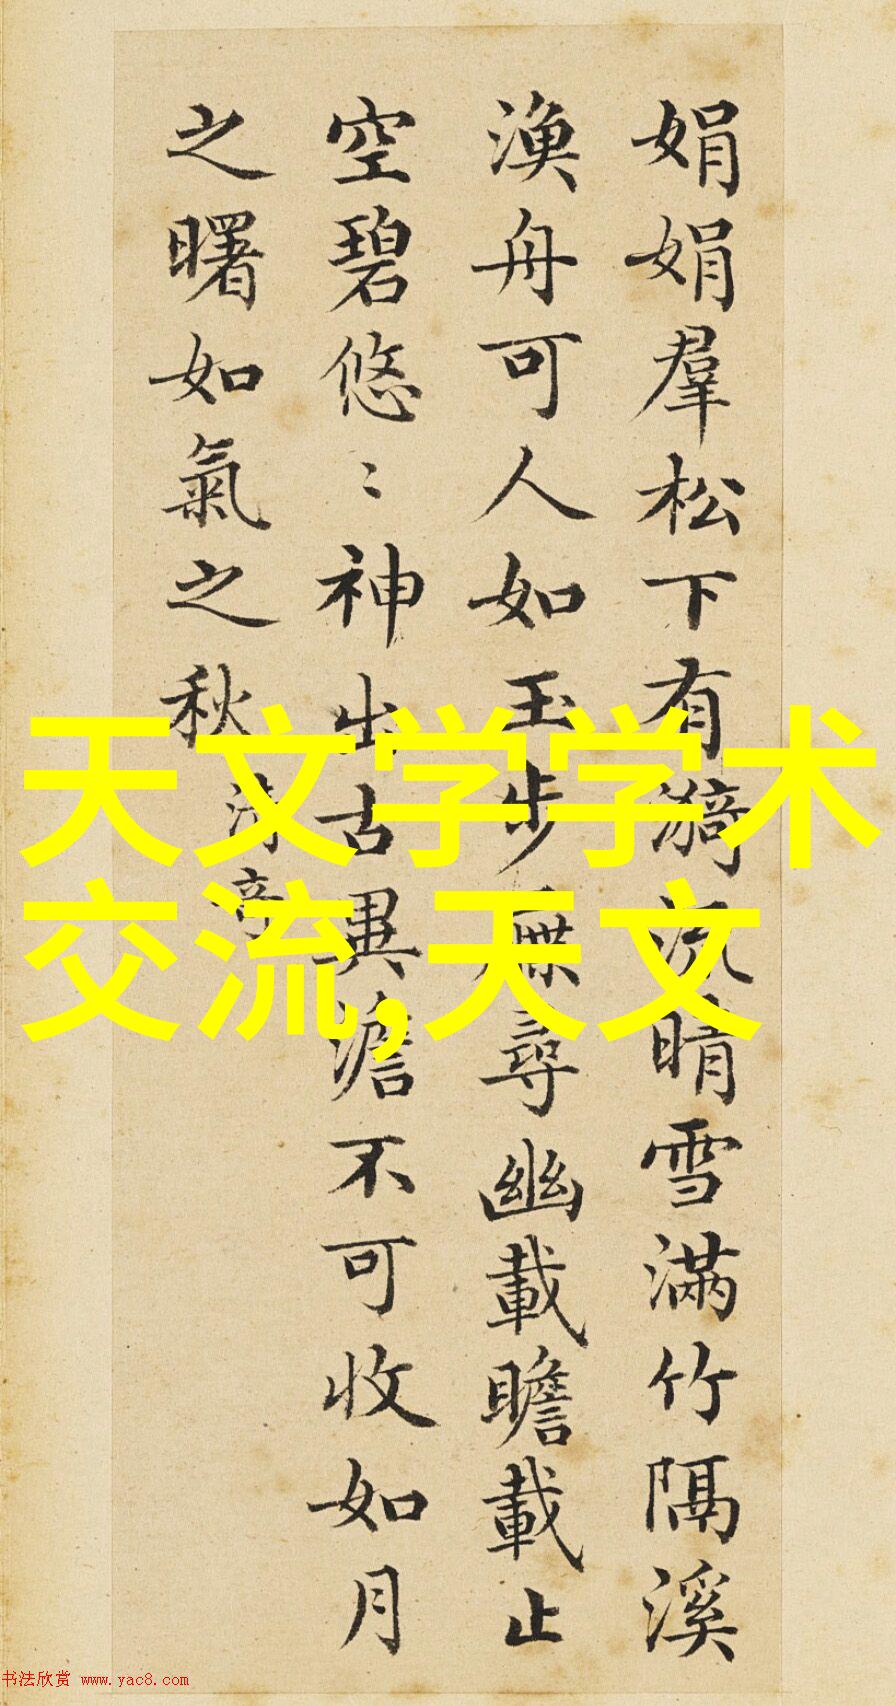 娟娟羣松下有漪流晴雪滿竹隔溪
漁舟可人如玉步屧尋幽載瞻載止
空碧悠〻神出古異澹不可收如月
之曙如氣之秋
清奇
天文学学术
交流,天文
书法欣赏 www.yac8.com